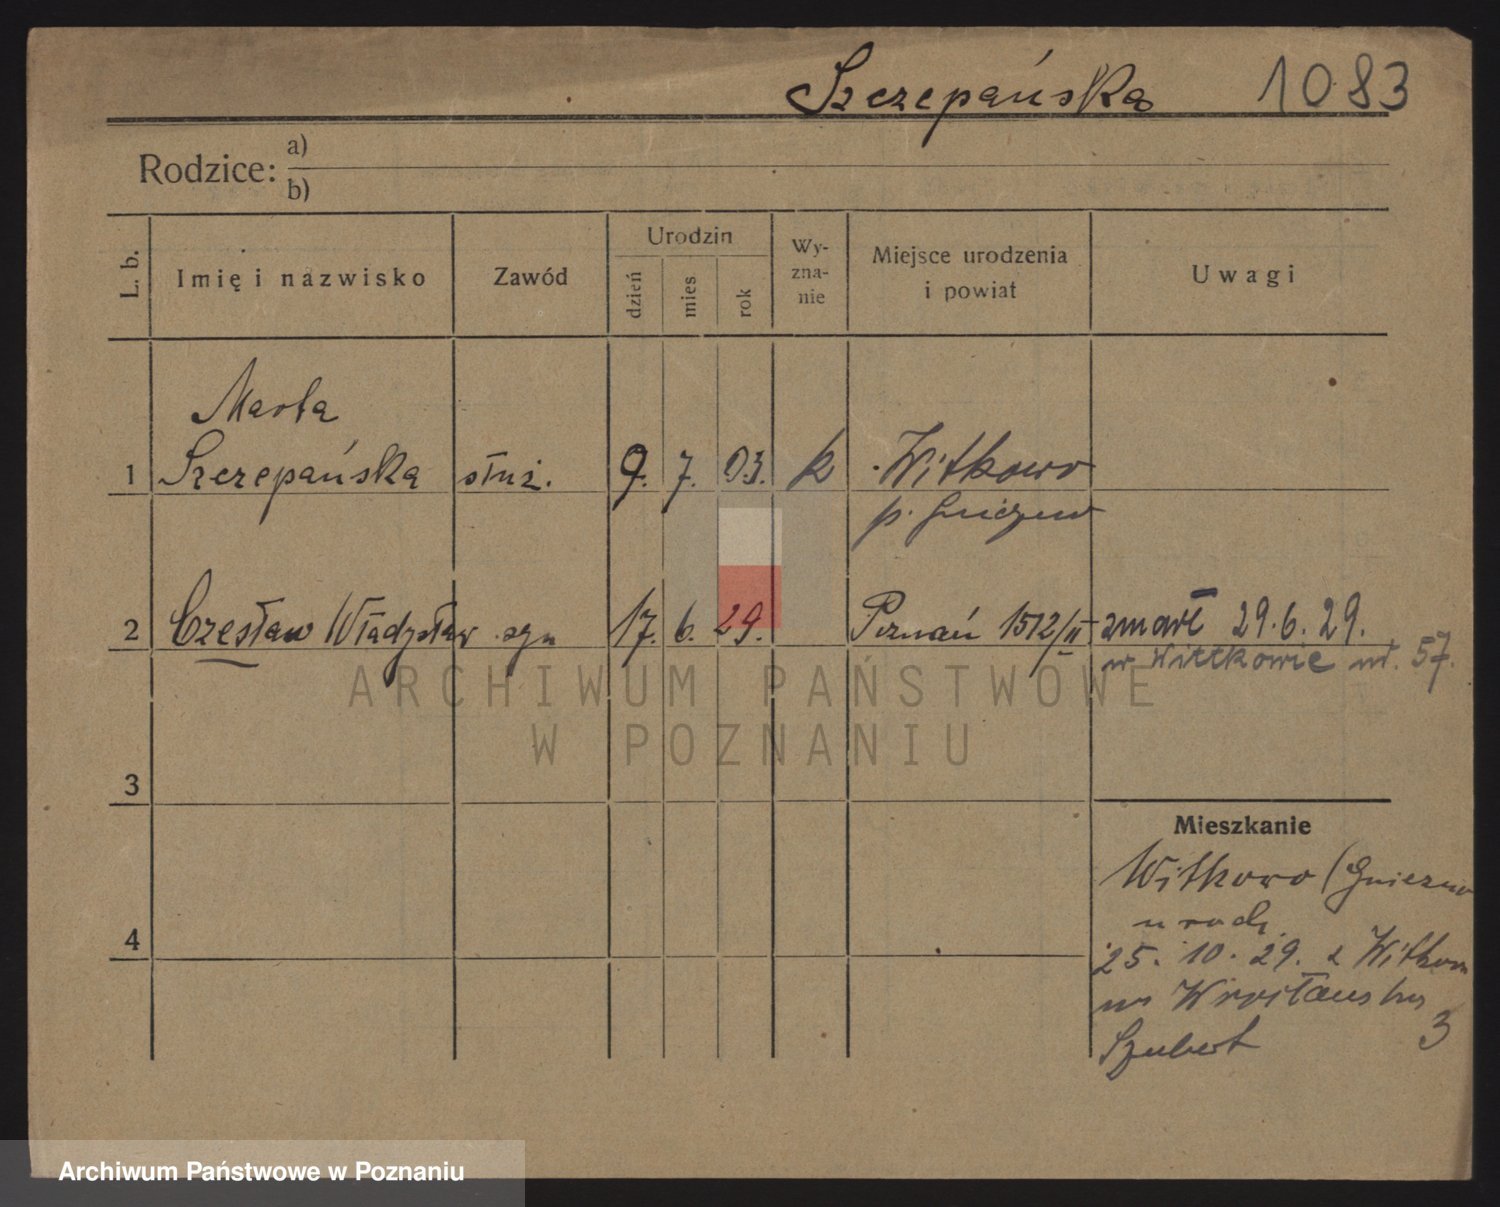 Szczepańska 1083
Rodzice: a)
b)
L. b. Imię i nazwisko Zawód Urodzin dzień mies rok Wy-zna-nie Miejsce urodzenia i powiat Uwagi
Marta
1 Szczepańska służ. 9. 7. 03. k Witkowo
p. Gniezno
2 Czesław Władysław syn 17. 6. 29. Poznań 1512/II zmarł 29.6.29.
w Wittkowie nr. 57.
ARCHIWUM PAŃSTWOWE
W POZNANIU
3
Mieszkanie
Witkowo (Gniezno
u rodz.
4
25. 10. 29. z Witkowa
3
Szubert
Archiwum Państwowe w Poznaniu